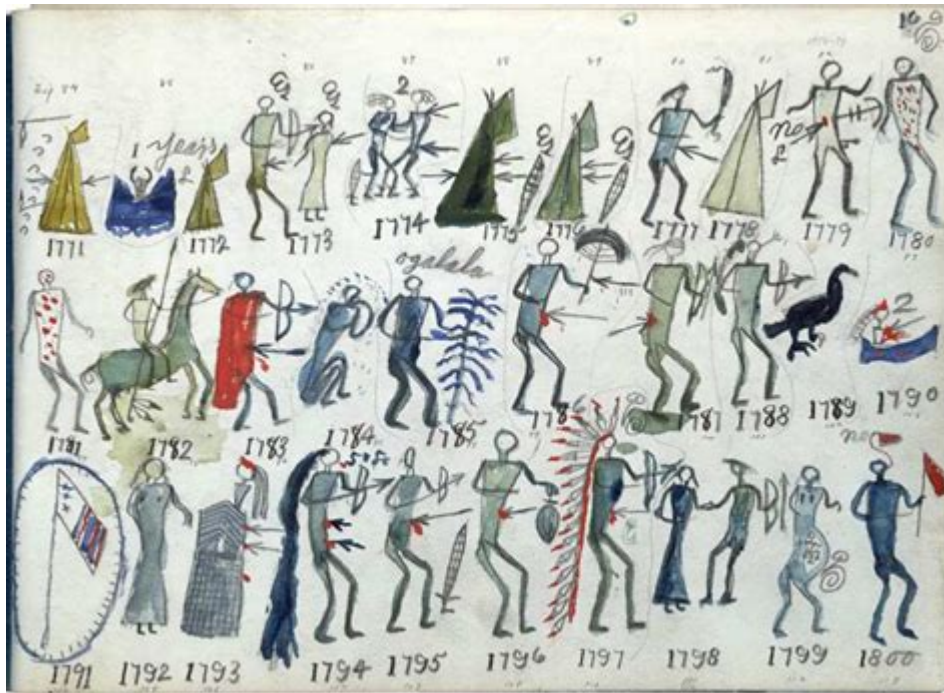 16
1 years 2
2
no 2
1771 1772 1773 1774 1775 1776 1777 1778 1779 1780
ogalala
2
1781 1782 1783 1784 1785 1786 1787 1788 1789 1790
no
1791 1792 1793 1794 1795 1796 1797 1798 1799 1800